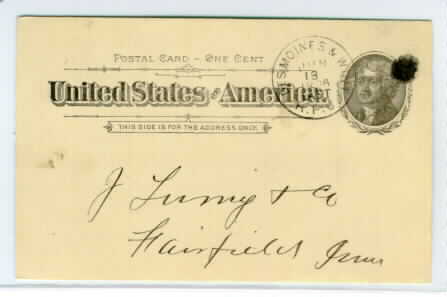 POSTAL CARD - ONE CENT
United States of America.
THIS SIDE IS FOR THE ADDRESS ONLY.
DES MOINES & W
JUN
13
R.P.O.
J & Co
Fairfield